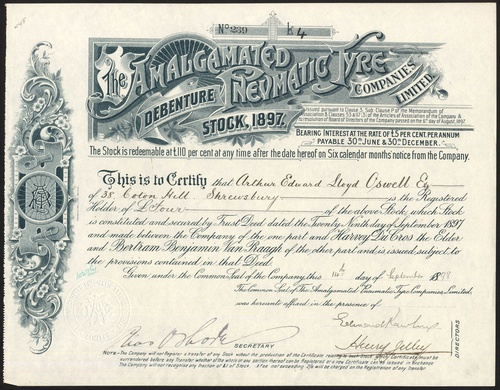 No 239 £4
The AMALGAMATED PNEUMATIC TYRE COMPANIES LIMITED.
DEBENTURE STOCK, 1897.
Issued pursuant to Clause 3, Sub. Clause P of the Memorandum of
Association & Clauses 53 & 67 of the Articles of Association of the Company &
to resolution of Board of Directors of the Company passed on the 6th day of August, 1897.
BEARING INTEREST AT THE RATE OF £5 PER CENT, PER ANNUM
PAYABLE 30TH JUNE & 30TH DECEMBER.
The Stock is redeemable at £110 per cent at any time after the date hereof on Six calendar months notice from the Company.
This is to Certify that Arthur Edward Lloyd Oswell Esq
of 38 Coton Hill Shrewsbury is the Registered
Holder of £Four of the above Stock, which Stock
is constituted and secured by Trust Deed dated the Twenty Ninth day of September 1897
and made between the Company of the one part and Harvey Du Cros the Elder
and Bertram Benjamin Van Praagh of the other part and is issued subject to
the provisions contained in that Deed.
Given under the Common Seal of the Company, this 14th day of September 1898
The Common Seal of The Amalgamated Pneumatic Tyre Companies, Limited,
was hereunto affixed in the presence of
SECRETARY
DIRECTORS
NOTE.-The Company will not Register a transfer of any Stock without the production of the Certificate relating to such Stock
surrendered before any Transfer whether of the whole or any portion thereof can be Registered or a new Certificate can be issued in Exchange.
The Company will not recognise any fraction of £1 of Stock. A Fee not exceeding 2/6 will be charged on the Registration of any Transfer.